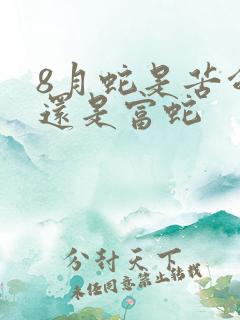 8月蛇是苦命
還是富蛇
分封天下
未经同意禁止转载